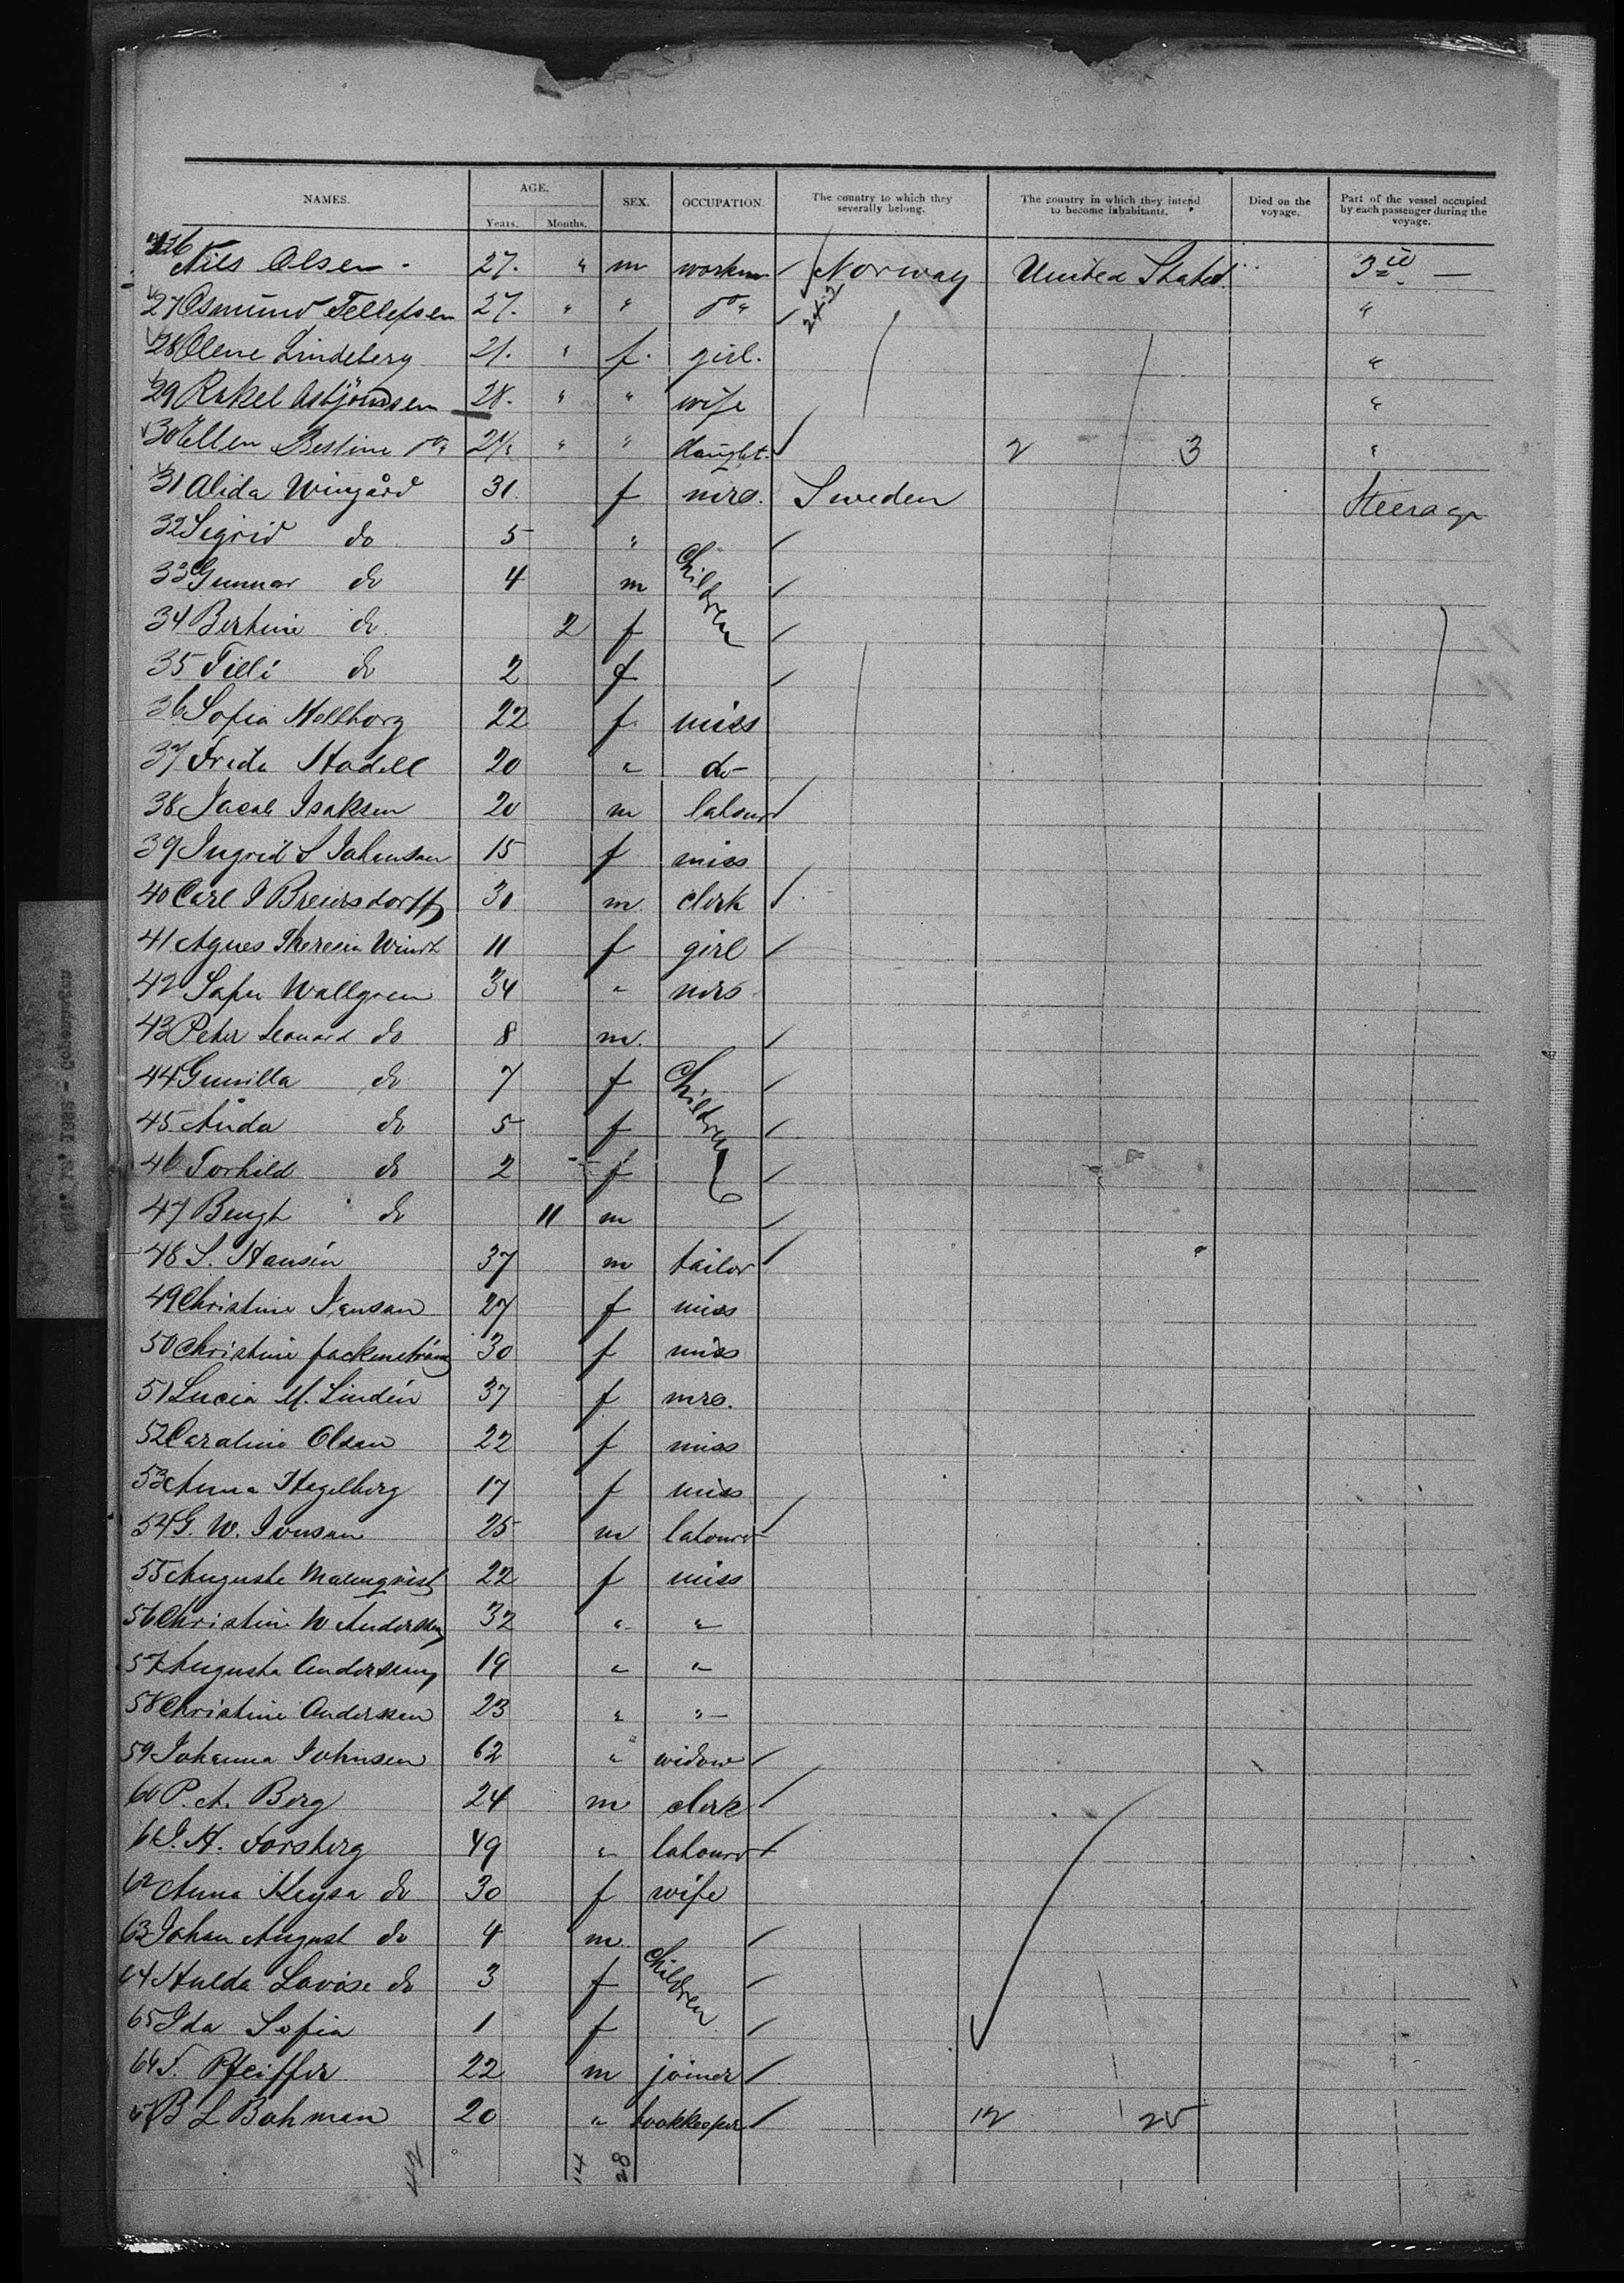 NAMES. AGE. SEX. OCCUPATION. The country to which they severally belong. The country in which they intend to become inhabitants. Died on the voyage. Part of the vessel occupied by each passenger during the voyage.
Years. Months.
Nils Olsen 27. " m workm Norway United States 3
27 Osmund Tellefsen 27. " " do " "
28 Olene Lindeberg 21. " f. girl. "
29 Rakel Asbjörnsen 28. " " wife "
30 Ellen Bertine do 2 " " daught. 2 3 "
31 Alida Wingård 31 f mrs. Sweden Steerage
32 Sigrid do 5 "
33 Gunnar do 4 m Children
34 Bertine do 2 f
35 Tilli do 2 f
36 Sofia Hellborg 22 f. miss
37 Frida Hadell 20 " do
38 Jacob Isaksen 20 m labour
39 Ingrid S Johansan 15 f miss
40 Carl J Breiersdorff 30 m. clerk
41 Agnes Theresia 11 f girl
42 Wallgren 34 " mrs
43 Peter Leonard do 8 m.
44 Gunilla do 7 f Children
45 do 5 f
46 Torhild do 2 f
47 Bengt do 11 m
48 S. Hansen 37 m tailor
49 Christine Jensan 27 f miss
50 Christine 30 f miss
51 Lucia M. Lindén 37 f mrs.
52 Caroline Olsan 22 f miss
53 Anna Hegelberg 17 f miss
54 G. W. Ionsan 25 m labourer
55 Auguste Malmqvist 22 f miss
56 Christine W Andersson 32 " "
57 Augusta Andersson 19 " "
58 Christine Andersson 23 " "
59 Johanna Johnsen 62 " widow
60 P. A. Berg 24 m clerk
61 J. H. Forsberg 49 " labourer
62 Anna Keysa do 30 f wife
63 Johan August do 4 m.
64 Hulda Lovise do 3 f Children
65 Ida Sofia 1 f
66 F. Pfeiffer 22 m joiner
67 B L Bohman 20 " bookkeeper 12 25
42 14 28